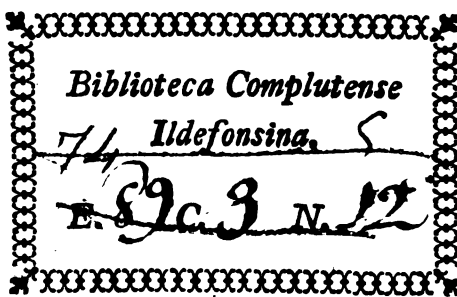 Biblioteca Complutense
Ildefonsina.
74 S
E. 89 C. 3 N. 12